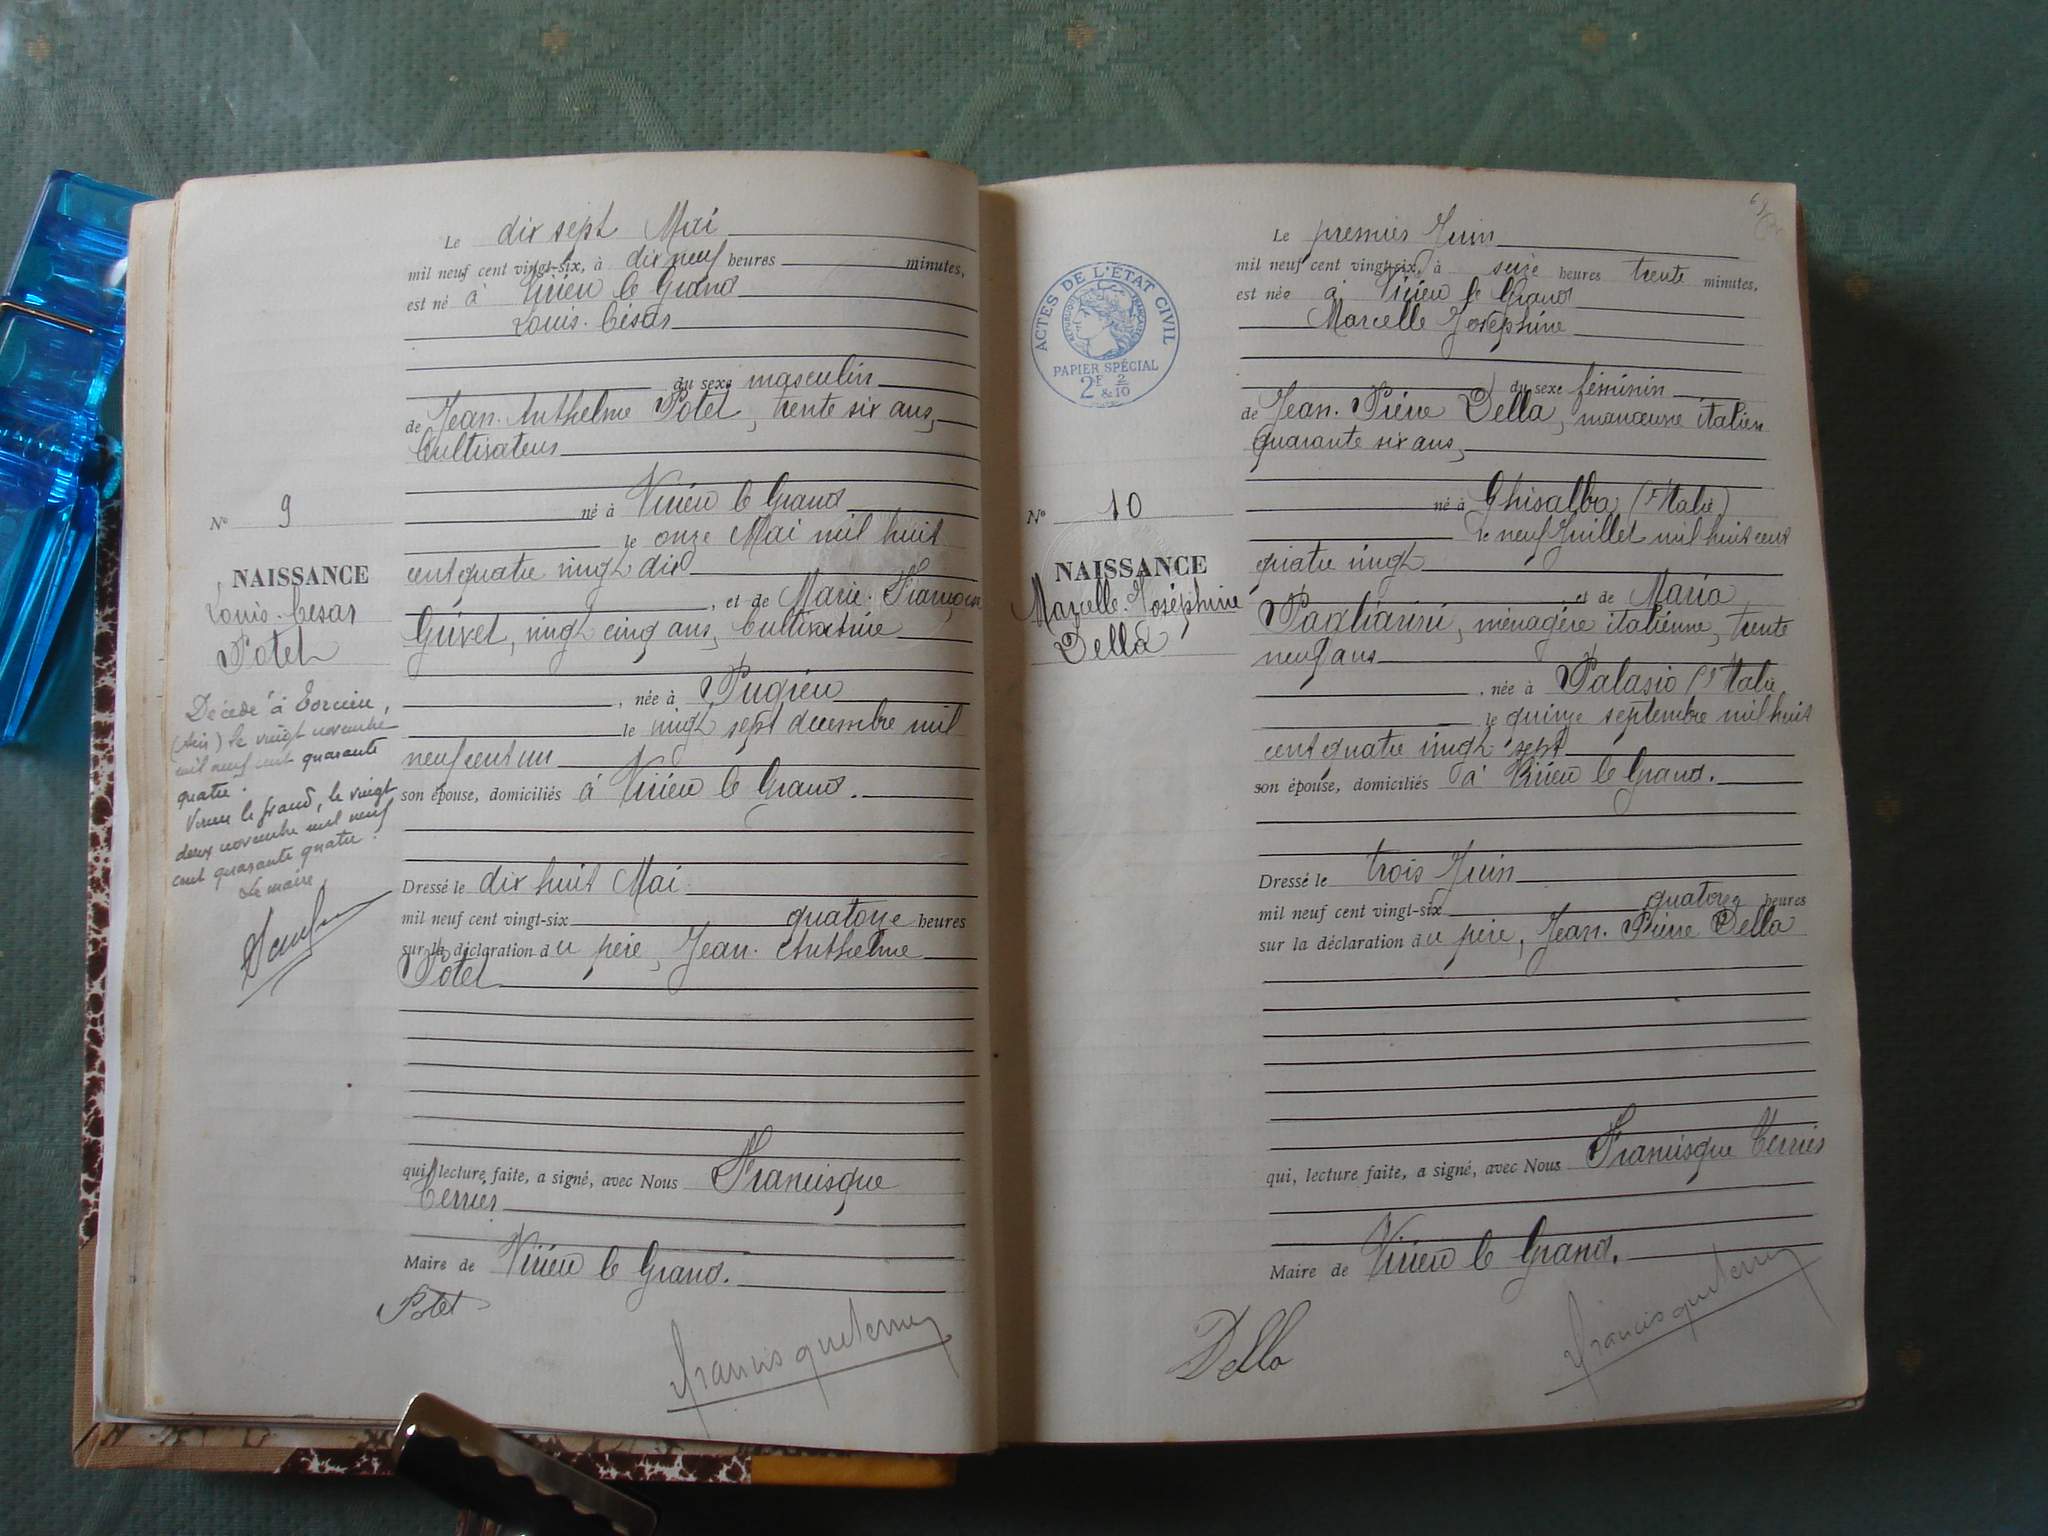 Le dix sept Mai
mil neuf cent vingt-six, à dix neuf heures minutes,
est né à Virieu le Grand
Louis-César
du sexe masculin
de Jean-Anthelme Potet, trente six ans,
Cultivateur
né à Virieu le Grand
le onze Mai mil huit
cent quatre vingt dix
, et de Marie-Françoise
Grivet, vingt cinq ans, Cultivatrice
, née à Pugieu
le vingt sept decembre mil
neuf cent un
son épouse, domiciliés à Virieu le Grand.
Dressé le dix huit Mai
mil neuf cent vingt-six quatorze heures
sur la déclaration du père, Jean-Anthelme
Potet
qui, lecture faite, a signé, avec Nous Francisque
Terrier
Maire de Virieu le Grand.
Potet
Francisque Terrier
N° 9
NAISSANCE
Louis-César
Potet
Décédé à
(Ain) le vingt novembre
mil neuf cent quarante
quatre.
Virieu le Grand, le vingt
deux novembre mil neuf
cent quarante quatre.
Le maire
ACTES DE L'ÉTAT CIVIL
RÉPUBLIQUE FRANÇAISE
PAPIER SPÉCIAL
2F & 2/10
N° 10
NAISSANCE
Marcelle-Joséphine
Della
Le premier Juin
mil neuf cent vingt-six, à seize heures trente minutes,
est née à Virieu le Grand
Marcelle Joséphine
du sexe féminin
de Jean-Pierre Della, manœuvre italien
quarante six ans,
né à Ghisalba (Italie)
le neuf Juillet mil huit cent
quatre vingt
et de Maria
Pagliarini, ménagère italienne, trente
neuf ans
, née à Palasio (Italie
le quinze septembre mil huit
cent quatre vingt sept
son épouse, domiciliés à Virieu le Grand.
Dressé le trois Juin
mil neuf cent vingt-six quatorze heures
sur la déclaration du père, Jean-Pierre Della
qui, lecture faite, a signé, avec Nous Francisque Terrier
Maire de Virieu le Grand.
Della
Francisque Terrier